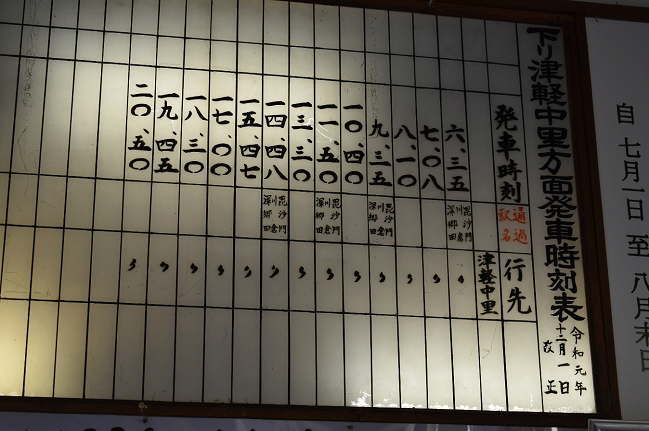 自 七月一日 至 八月末日
下り津軽中里方面発車時刻表
令和元年
十二月一日
改正
発車時刻 通過駅名 行先
津軽中里
六、三五 毘沙門 川倉 深郷田 〃
七、〇八 〃
八、一〇 〃
九、三五 毘沙門 川倉 深郷田 〃
一〇、四〇 〃
一一、五〇 毘沙門 川倉 深郷田 〃
一三、三〇 〃
一四、四八 毘沙門 川倉 深郷田 〃
一五、四七 〃
一七、〇〇 〃
一八、三〇 〃
一九、四五 〃
二〇、五〇 〃